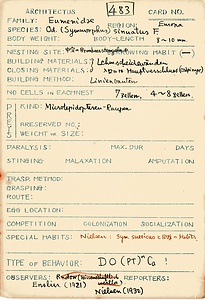 ARCHITECTUS 483 CARD NO.
FAMILY: Eumenidae REGION: Europa
SPECIES: Od. (Symmorphus) sinuatus F.
BODY WEIGHT: BODY-LENGTH 8-10 mm
NESTING SITE: BURROWING HABIT (—)
BUILDING MATERIALS: Lehmscheidewänden
CLOSING MATERIALS: Hauptverschluss
BUILDING METHOD: Linienbauten
NO. CELLS IN EACH NEST 7 zellen, 4~8 zellen
PREY KIND: Microlepidopteren-Raupen
PRESERVED NO.:
WEIGHT OR SIZE:
PARALYSIS: MAX. DUR DAYS
STINGING MALAXATION AMPUTATION
TRASP. METHOD:
GRASPING:
ROUTE:
EGG LOCATION:
COMPETITION COLONIZATION SOCIALIZATION
SPECIAL HABITS: Nielsen: Sym.
TYPE OF BEHAVIOR: DO(PT)ⁿC!
OBSERVERS: REPORTERS:
Enslin (1921)
Nielsen (1932)